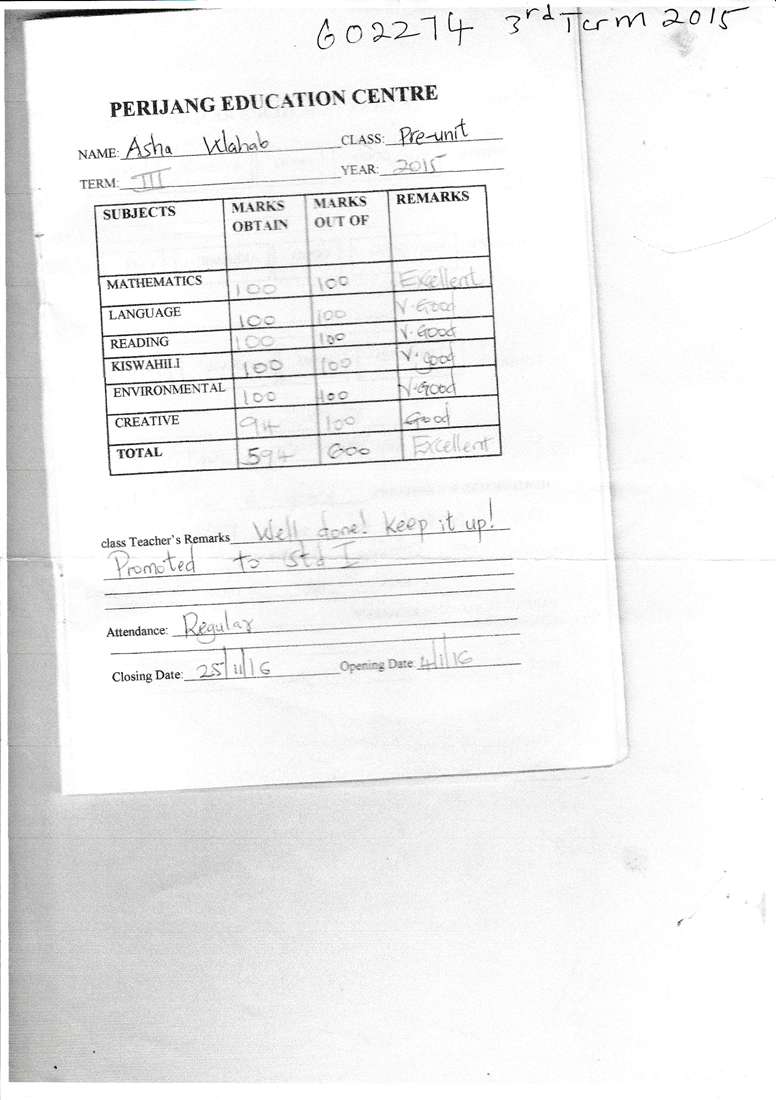 G02274 3rd Term 2015
PERIJANG EDUCATION CENTRE
NAME: Asha Wahab CLASS: Pre-unit
TERM: III YEAR: 2015
SUBJECTS MARKS OBTAIN MARKS OUT OF REMARKS
MATHEMATICS 100 100 Excellent
LANGUAGE 100 100 V. Good
READING 100 100 V. Good
KISWAHILI 100 100 V. good
ENVIRONMENTAL 100 100 V. Good
CREATIVE 94 100 Good
TOTAL 594 600 Excellent
class Teacher's Remarks Well done! Keep it up!
Promoted to Std I
Attendance: Regular
Closing Date: 25/11/16 Opening Date 4/1/16